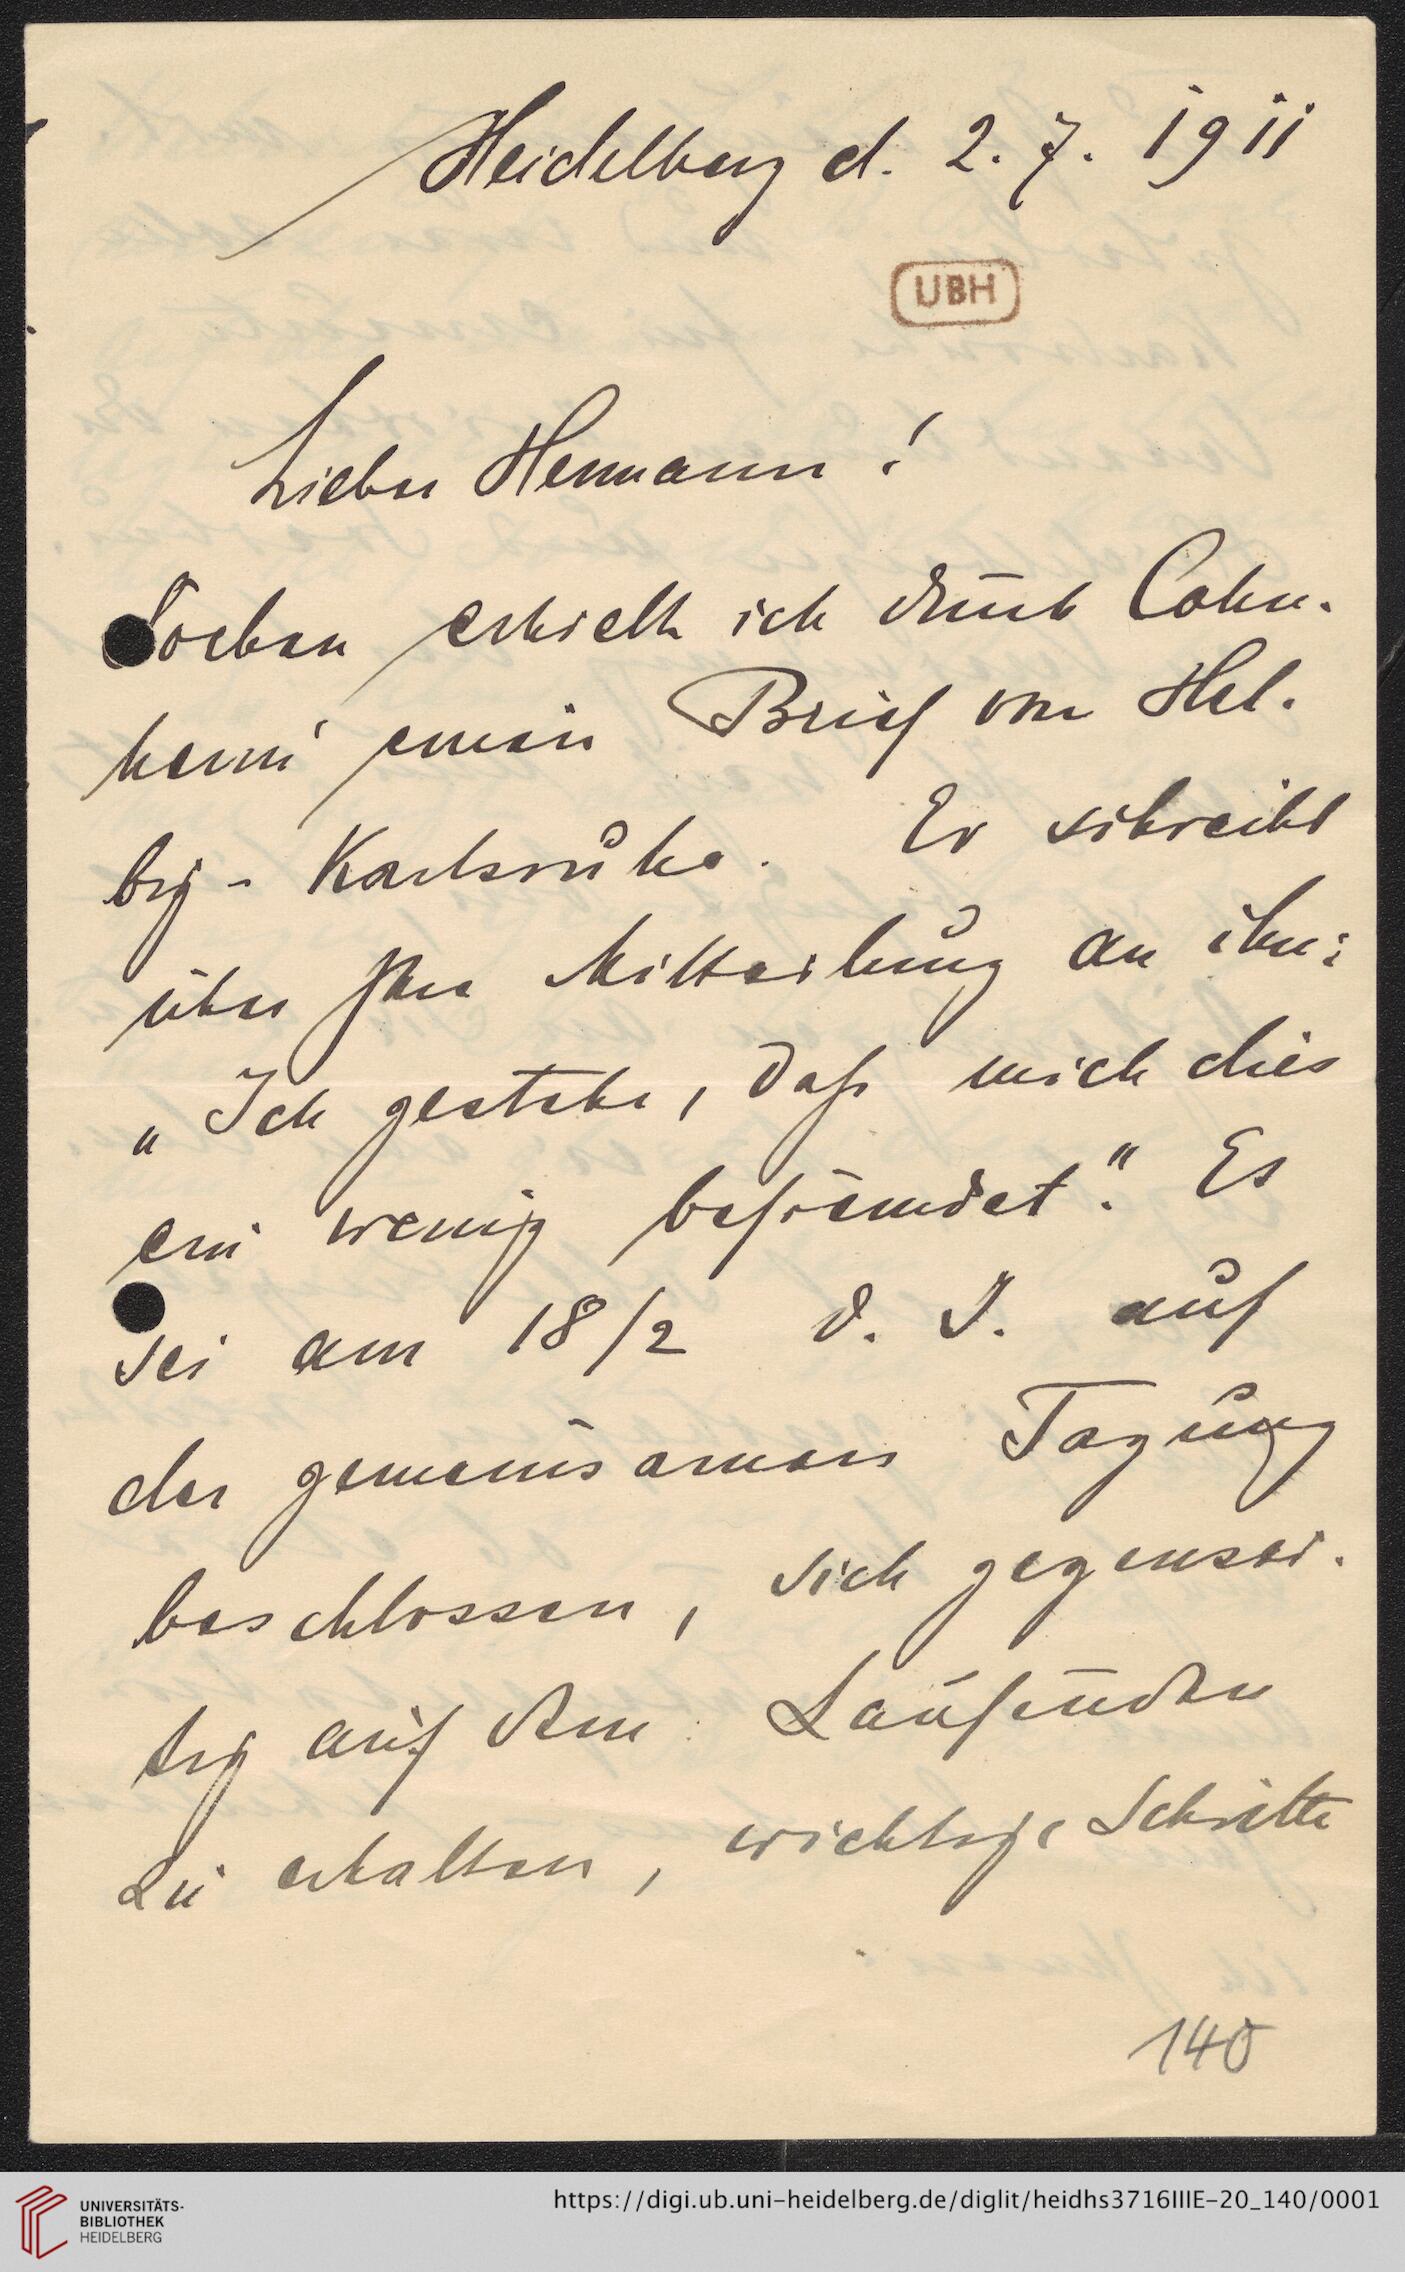 Heidelberg d. 2. 7. 1911
UBH
Lieber Hermann!
Soeben erhielt ich durch Cohn-
heim einen Brief von Hel-
big-Karlsruhe. Er schreibt
über Ihre Mitteilung an ihn:
„Ich gestehe, daß mich dies
ein wenig befremdet". Es
sei am 18/2 d. J. auf
der gemeinsamen Tagung
beschlossen, sich gegensei-
tig auf dem Laufenden
zu erhalten, wichtige Schritte
140
UNIVERSITÄTS-
BIBLIOTHEK
HEIDELBERG
https://digi.ub.uni-heidelberg.de/diglit/heidhs3716IIIE-20_140/0001